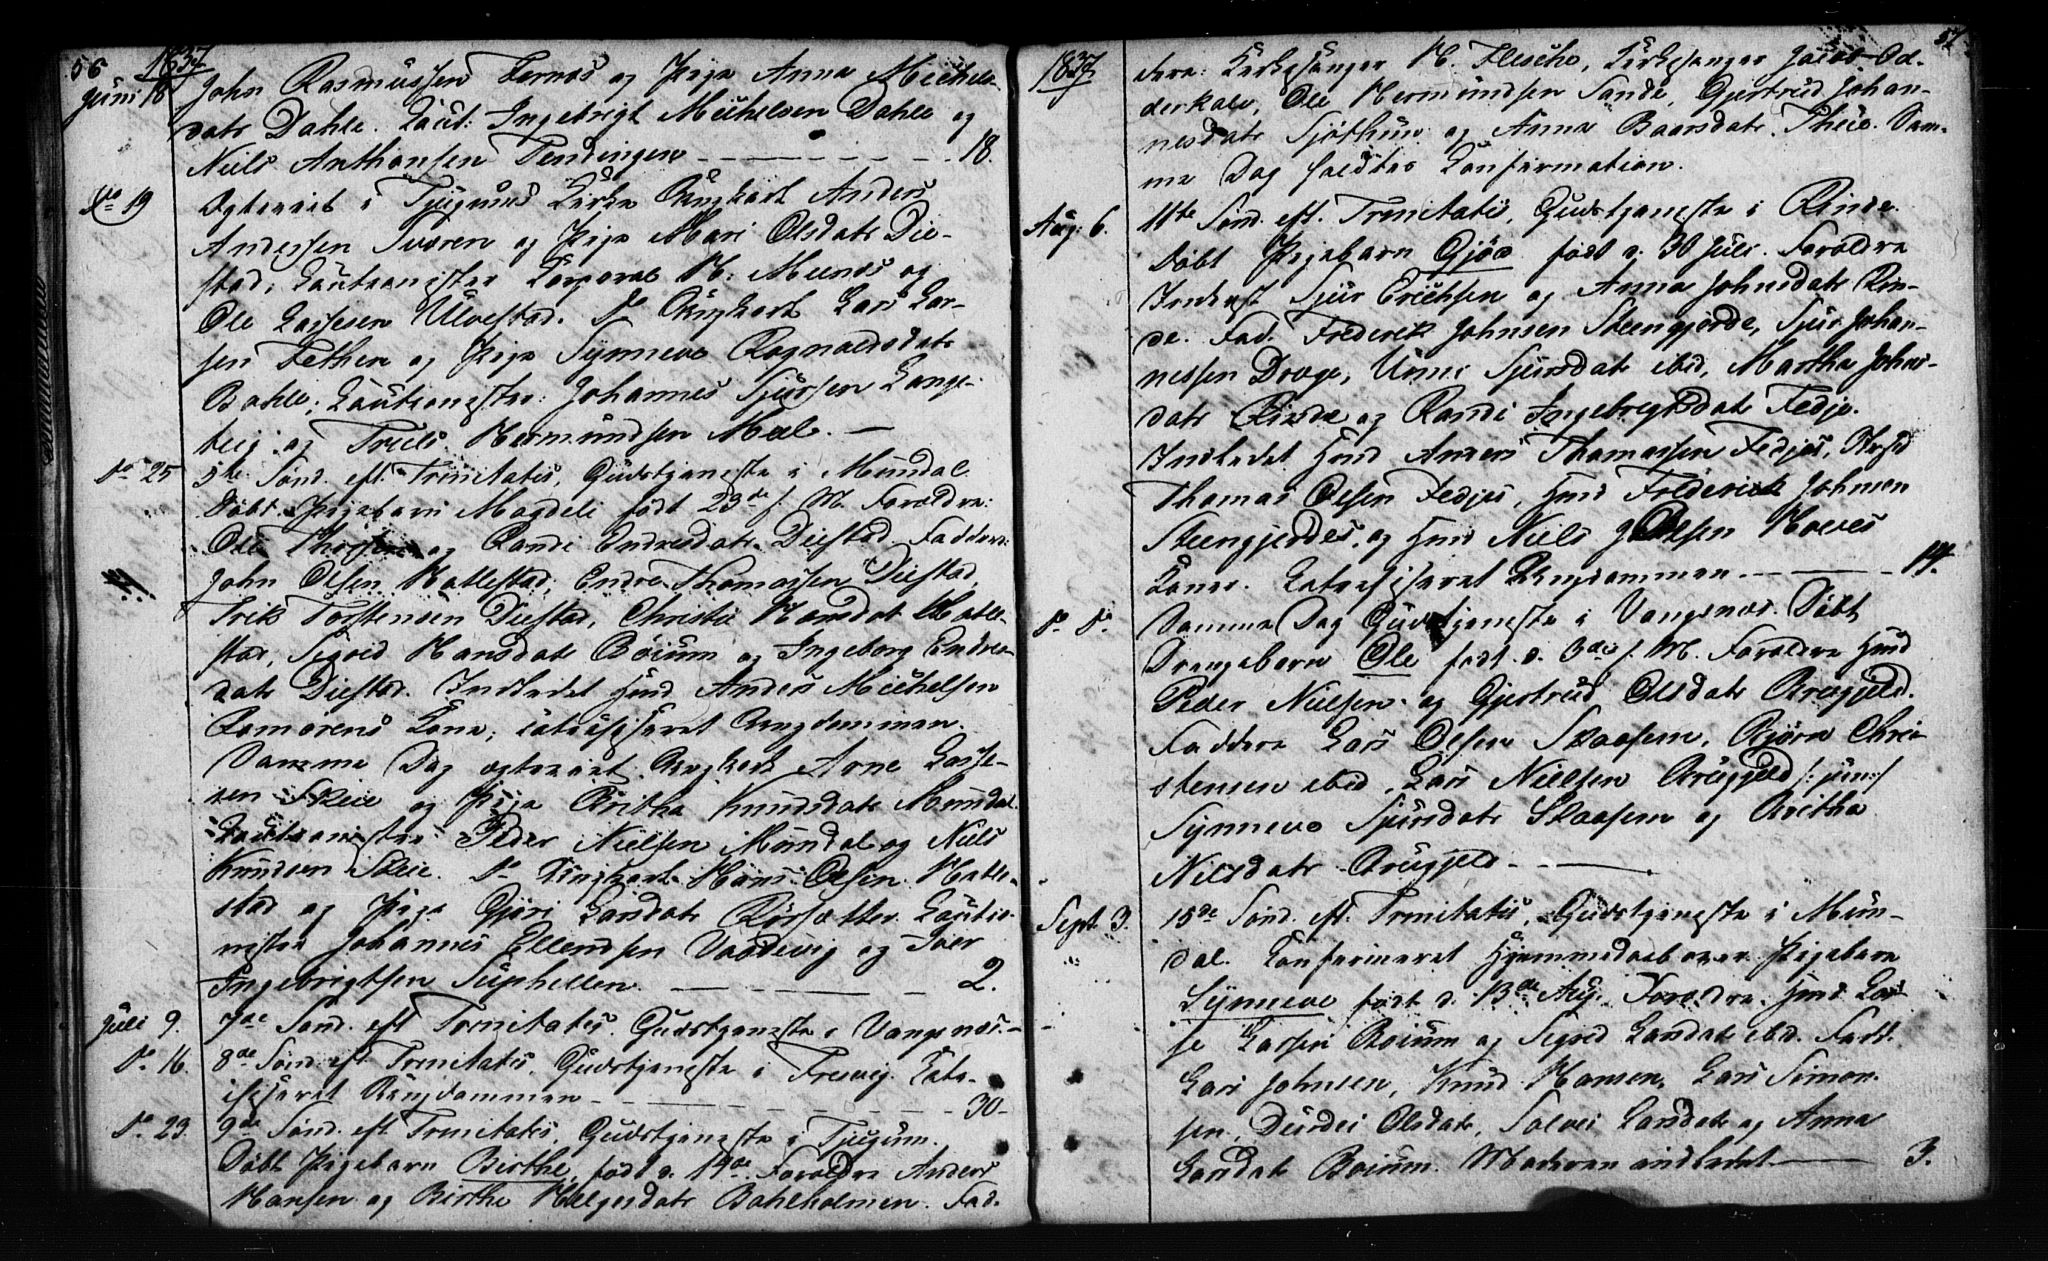 56 1837
Juni 18 John Rasmussen Ternæs og Pige Anna Michels-
datr Dahle. Caut: Ingebrigt Michelsen Dahle og
Niels Anthonsen Tendingen — 18.
do 19 Ogteviet i Tjugums Kirke Ungkarl Anders
Andersen Tværen og Pige Mari Olsdatr Die-
stad, Cautionister Corporal M: Meenes og
Ole Lassesen Ulvestad. do Ungkarl Lars Lar-
sen Fether og Pige Synneve Rognaldsdatr
Bahle; Cautionister: Johannes Sjursen Lange-
teig og Truls Hermundsen Mæl. —
do 25 5te Sønd. eft. Trinitatis, Gudstjeneste i Mundal
Døbt Pigebarn Magdeli født 23de f. M. Forældre:
Ole Thorsen og Randi Endresdatr Diestad. Faddere:
John Olsen Hatlestad, Endre Thomassen Diestad,
Erik Torstensen Diestad, Christi Hansdat Hatle-
stad, Sigrid Hansdatr Bøium og Ingeborg Endres-
datr Diestad. Indledet Hmd Anders Michelsen
Romørens Kone, catechiseret Ungdommen.
Samme Dag ogteviet Ungkarl Arne Lasse-
sen Skeie og Pige Britha Knudsdatr Mundal
Cautionister Peder Nielsen Mundal og Niels
Knudsen Skeie. do Ungkarl Hans Olsen Hatle-
stad og Pige Gjøri Larsdatr Cautio-
nister Johannes Ellendsen Vardevig og Iver
Ingebrigtsen Suphellen. — 2.
Juli 9. 7de Sønd. eft Trinitatis. Gudstjeneste i Vangsnes. —
do 16. 8de Sønd. eft Trinitatis, Gudstjeneste i Fresvig. Cate-
chiseret Ungdommen — 30 —
do 23. 9de Sønd. eft Trinitatis, Gudstjeneste i Tjugum.
Døbt Pigebarn Birthe, født d. 14de Forældre Anders
Hansen og Birthe Helgesdatr Bahleholmen. Fad-
57
1837 dere: Kirkesanger M. Flesche, Kirkesanger Jacob Od-
derkalv, Ole Hermundsen Sande, Gjertrud Johan-
nesdatr Sjøthun og Anna Baarsdatr Thue. Sam-
me Dag holdtes Confirmation.
Aug: 6. 11te Sønd. eft. Trinitatis, Gudstjeneste i Rinde.
Døbt Pigebarn Gjøe født d. 30 Juli. Forældre
Inderst Sjur Erichsen og Anna Johnsdatr Rin-
de. Fad. Frederik Johnsen Steengjerde, Sjur Johan-
nessen Drage, Unni Sjursdatr ibid, Martha Johns-
datr Rinde og Randi Ingebregtsdatr Fedje.
Indledet Hmd Anders Thomassen Fedjes,
Thomas Olsen Fedjes, Hmd Frederick Johnsen
Steengjerdes, og Hmd Niels Olsen Hoves
Koner. Catechiseret Ungdommen — 14.
do do Samme Dag Gudstjeneste i Vangsnes. Døbt
Drengebarn Ole født d. 3de f. M. Forældre Hmd
Peder Nielsen og Gjertrud Olsdatr Brugjeld.
Faddere Lars Olsen Skaasem, Bjørn Chri-
stensen ibid, Lars Nielsen Brugjeld /: jun: /
Synneve Sjursdatr Skaasem og Britha
Nilsdatr Brugjeld. —
Sept. 3. 15de Sønd. eft. Trinitatis, Gudstjeneste i Mun-
dal. Confirmeret Hjemmedaaben over Pigebarn
Synneve født d. 13de Aug. Forældre Hmd Las-
se Larsen Bøium og Sigrid Larsdatr ibd. Fadd.
Lars Johnsen, Knud Hansen, Lars Simon-
sen, Durdei Olsdatr, Solvei Larsdatr og Anna
Larsdatr Bøium. Moderen indledet — 3.